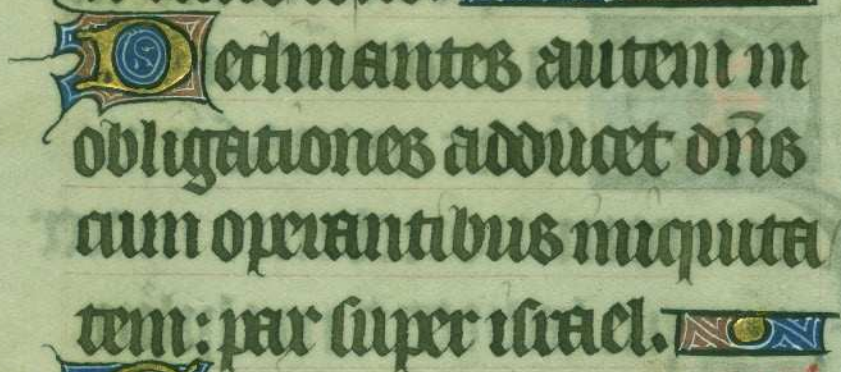 Declinantes autem in
obligationes adducet dñs
cum operantibus iniquita
tem: pax super israel.